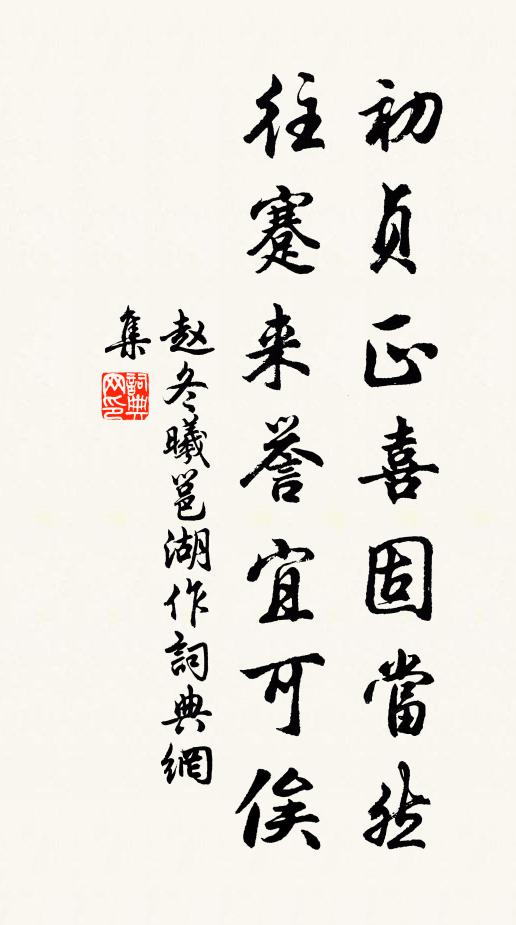 初貞正喜固當然
往蹇来誉宜可俟
赵冬曦邕湖作詞典網
集
詞典
网印